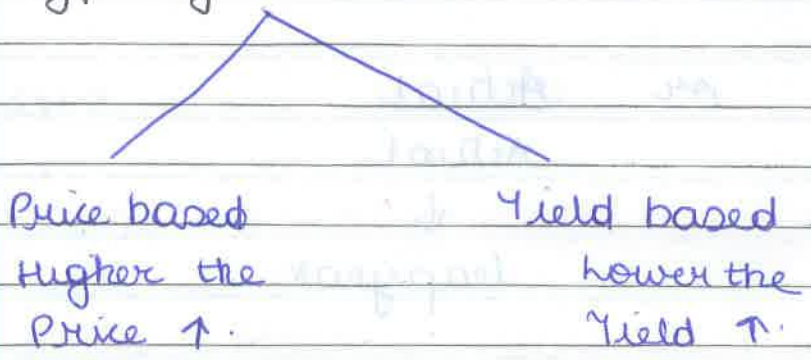 Price based
Higher the
Price ↑.
Yield based
Lower the
Yield ↑.